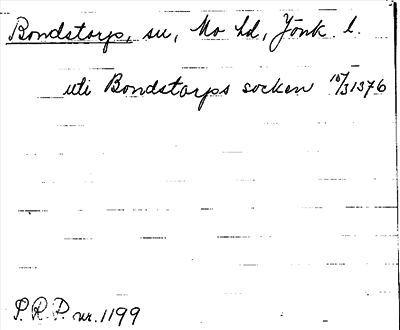 Bondstorps, sn, Mo hd, Jönk. l.
uti Bondstorps socken 10/3 1376
P.R.P. nr. 1199